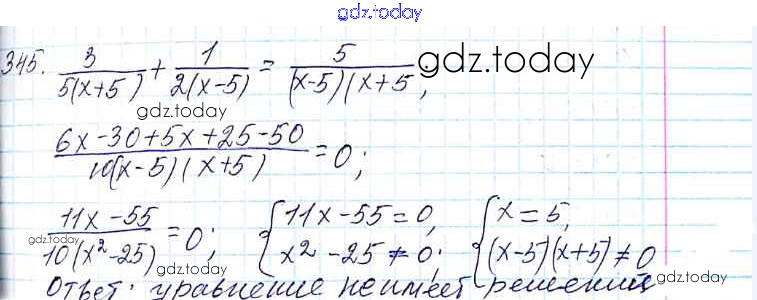 gdz.today
345. 3/(5(x+5)) + 1/(2(x-5)) = 5/((x-5)(x+5), gdz.today
gdz.today
(6x-30+5x+25-50)/(10(x-5)(x+5)) = 0;
(11x-55)/(10(x²-25)) = 0; { 11x-55=0, x²-25≠0; { x=5, (x-5)(x+5)≠0
gdz.today gdz.today gdz.today
Ответ: уравнение не имеет решений